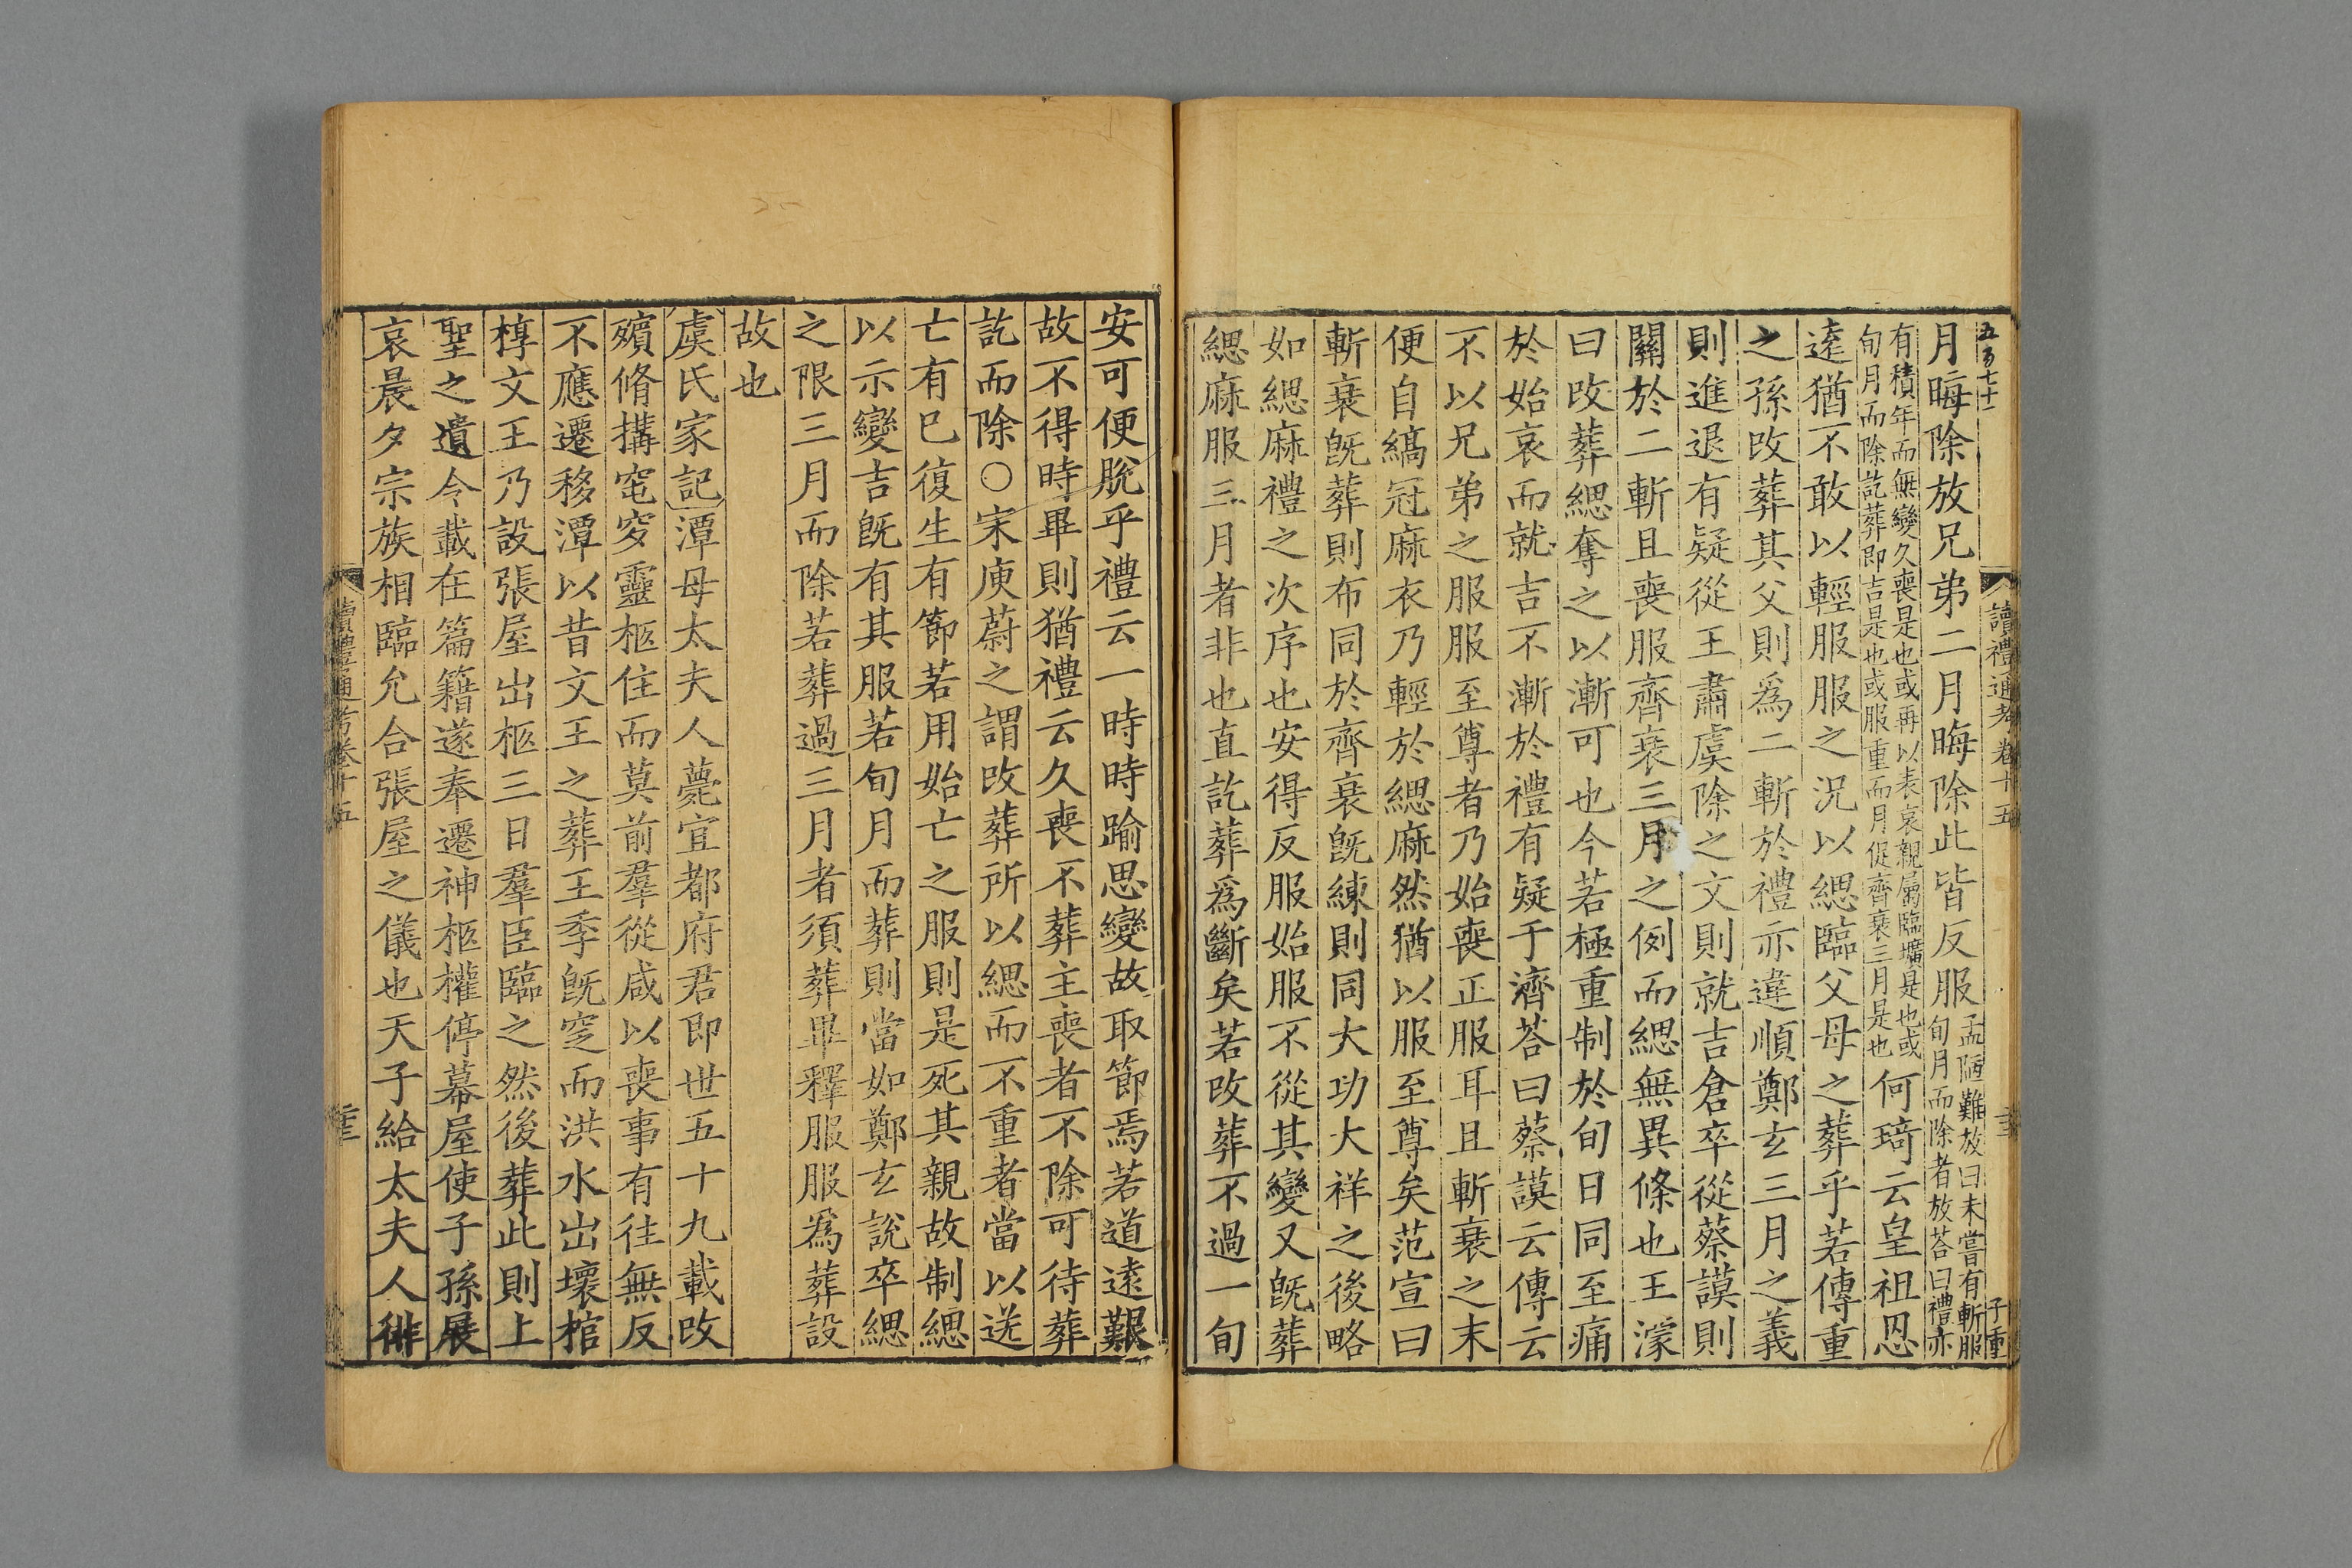 五百七十一
讀禮通考卷十五
子重
月晦除放兄弟二月晦除此皆反服孟陋難放曰未嘗有斬服
旬月而除者放荅曰禮亦
有積年而無變久喪是也或再以表哀親屬臨壙是也或
旬月而除訖葬即吉是也或服重而月促齊衰三月是也何琦云皇祖思
遠猶不敢以輕服服之况以緦臨父母之葬乎若傳重
之孫改葬其父則爲二斬於禮亦違順鄭玄三月之義
則進退有疑從王肅虞除之文則就吉倉卒從蔡謨則
關於二斬且喪服齊衰三月之例而緦無異條也王濛
曰改葬緦奪之以漸可也今若極重制於旬日同至痛
於始哀而就吉不漸於禮有疑于濟荅曰蔡謨云傳云
不以兄弟之服服至尊者乃始喪正服耳且斬衰之末
便自縞冠麻衣乃輕於緦麻然猶以服至尊矣范宣曰
斬衰既葬則布同於齊衰既練則同大功大祥之後略
如緦麻禮之次序也安得反服始服不從其變又既葬
緦麻服三月者非也直訖葬爲斷矣若改葬不過一旬
安可便脫乎禮云一時時踰思變故取節焉若道遠艱
故不得時畢則猶禮云久喪不葬主喪者不除可待葬
訖而除○宋庾蔚之謂改葬所以緦而不重者當以送
亡有已復生有節若用始亡之服則是死其親故制緦
以示變吉既有其服若旬月而葬則當如鄭玄說卒緦
之限三月而除若葬過三月者須葬畢釋服服爲葬設
故也
虞氏家記潭母太夫人薨宜都府君即世五十九載改
殯脩搆窀穸靈柩住而莫前羣從咸以喪事有往無反
不應遷移潭以昔文王之葬王季既窆而洪水出壞棺
椁文王乃設張屋出柩三日羣臣臨之然後葬此則上
聖之遺令載在篇籍遂奉遷神柩權停幕屋使子孫展
哀晨夕宗族相臨允合張屋之儀也天子給太夫人緋
讀禮通考卷十五